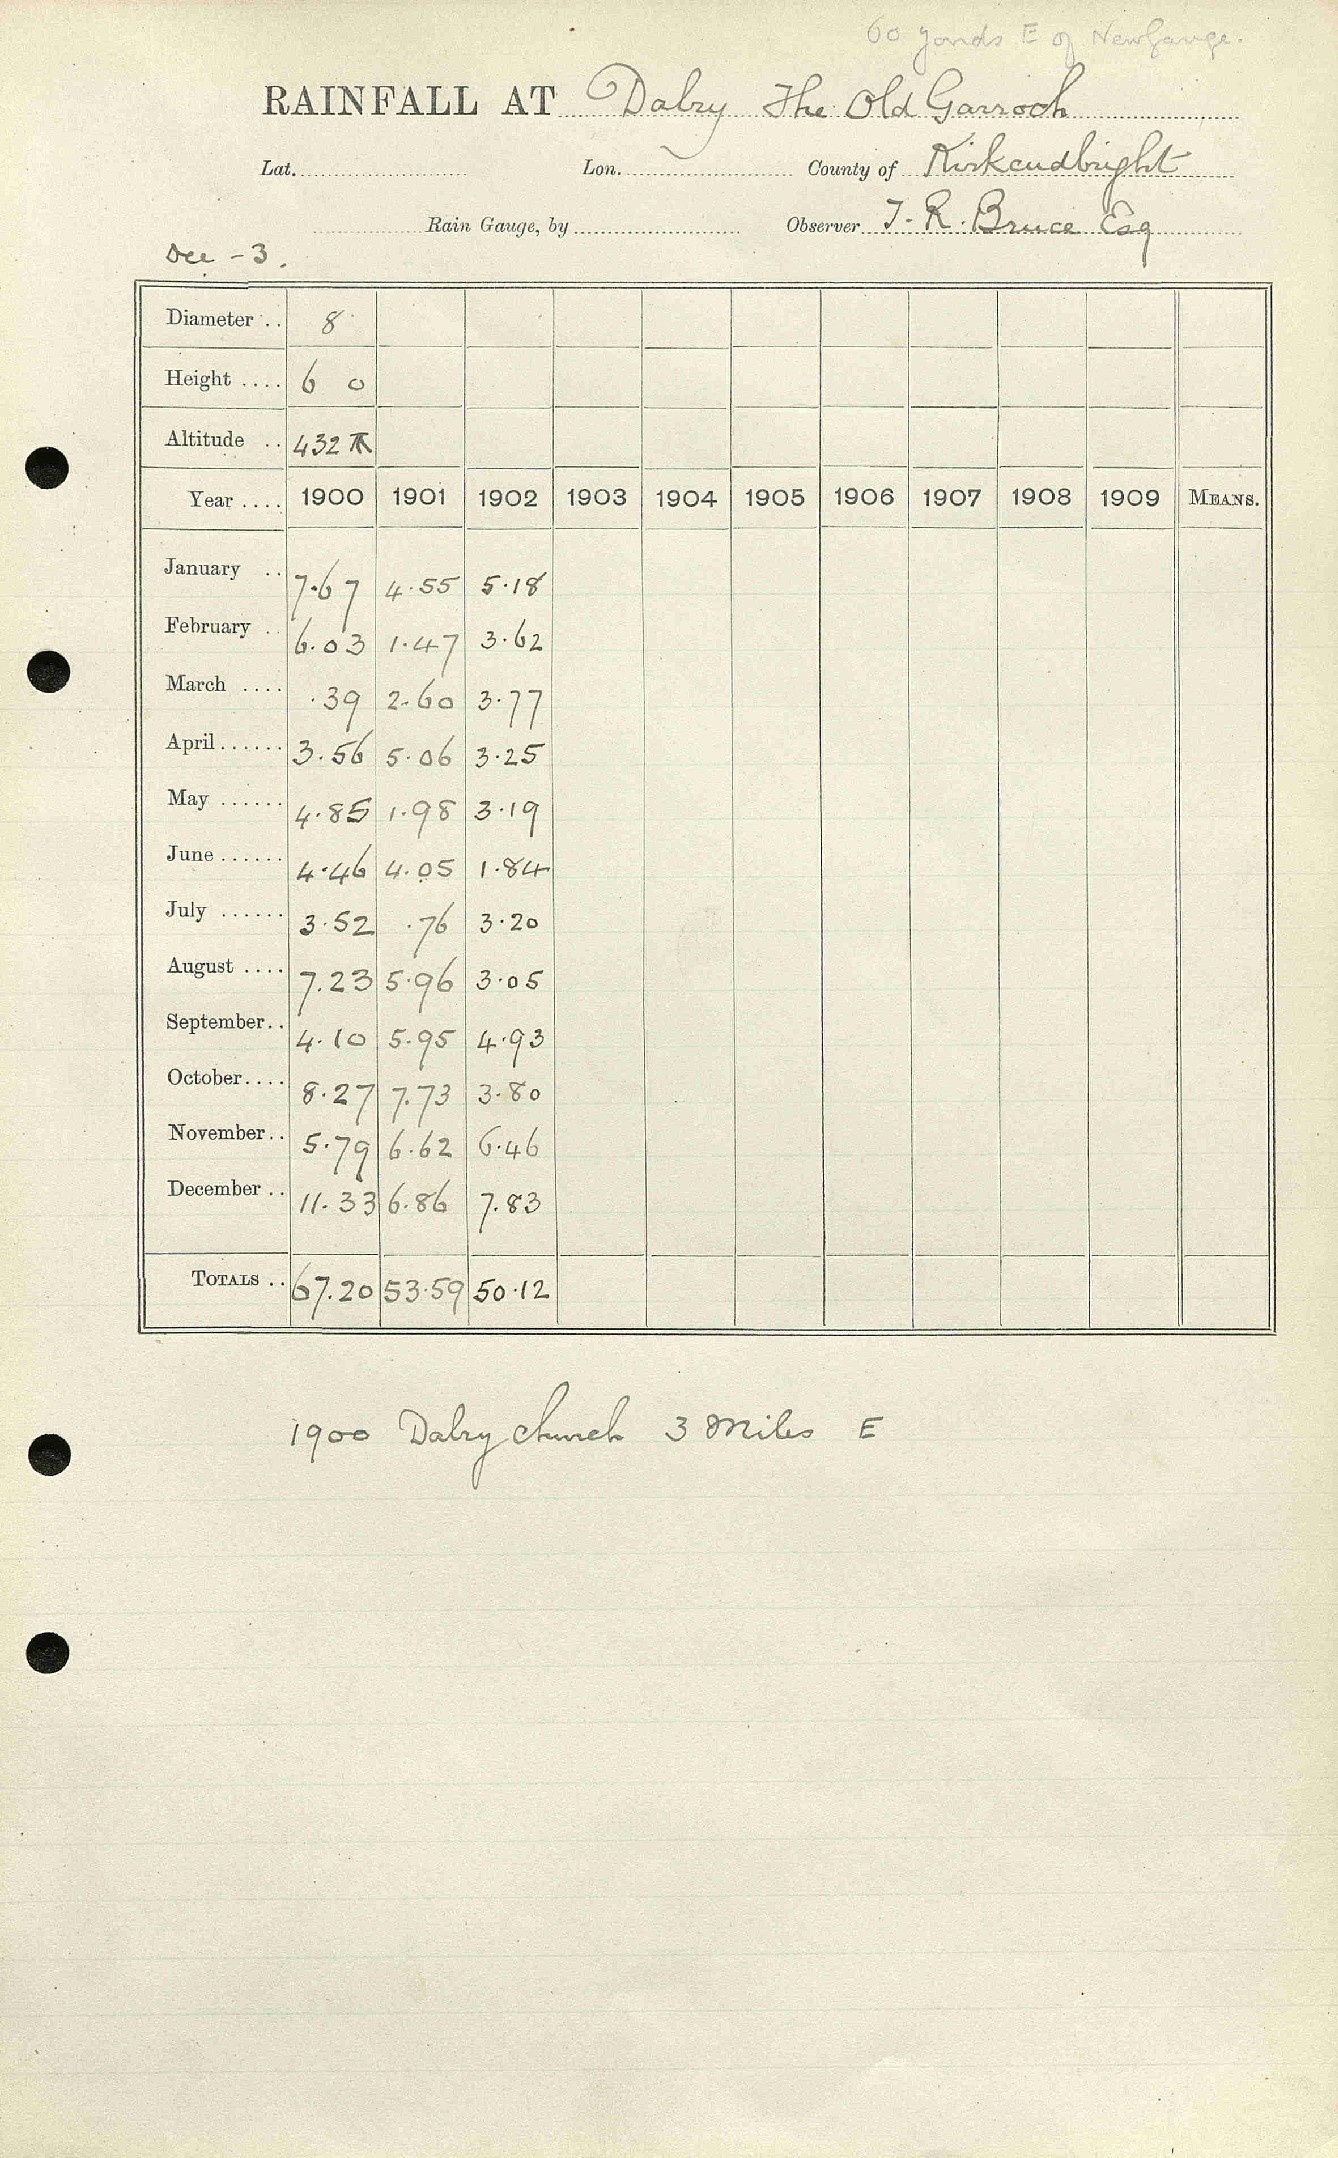 60 yards E of New Gauge.
RAINFALL AT Dalry The Old Garroch
Lat. Lon. County of Kirkcudbright
Rain Gauge, by Observer T. R. Bruce Esq
Dee - 3.
Diameter .. 8
Height .... 6 0
Altitude .. 432
Year .... 1900 1901 1902 1903 1904 1905 1906 1907 1908 1909 MEANS.
January .. 7.67 4.55 5.18
February .. 6.03 1.47 3.62
March .... .39 2.60 3.77
April ...... 3.56 5.06 3.25
May ...... 4.85 1.98 3.19
June ...... 4.46 4.05 1.84
July ...... 3.52 .76 3.20
August .... 7.23 5.96 3.05
September.. 4.10 5.95 4.93
October.... 8.27 7.73 3.80
November.. 5.79 6.62 6.46
December .. 11.33 6.86 7.83
TOTALS .. 67.20 53.59 50.12
1900 Dalry church 3 Miles E